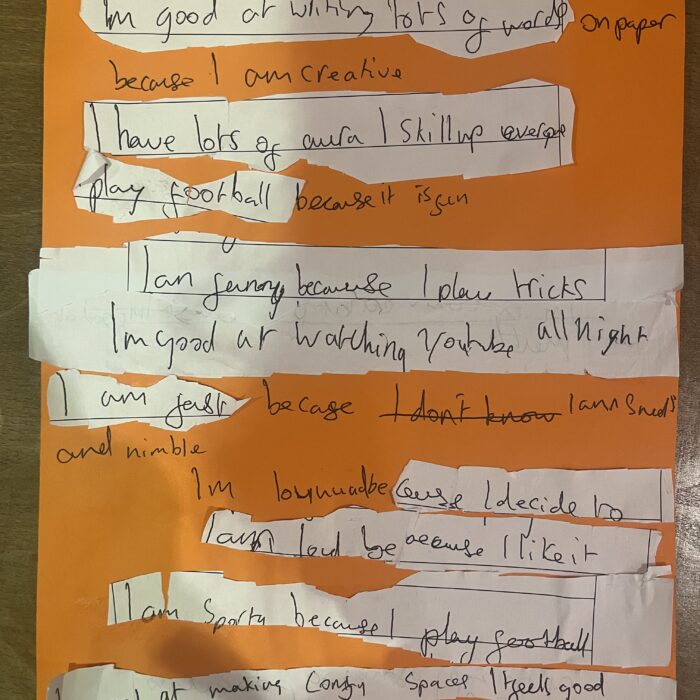 Im good at writing lots of words on paper
because I am creative
I have lots of aura I skillup
play football because it is fun
I am funny because I play tricks
Im good at watching Youtube all night
I am fast becase I don't know I am
and nimble
Im because I decide to
I am loud be because I like it
I am Sporty because I play football
at making Comfy Spaces I feels good